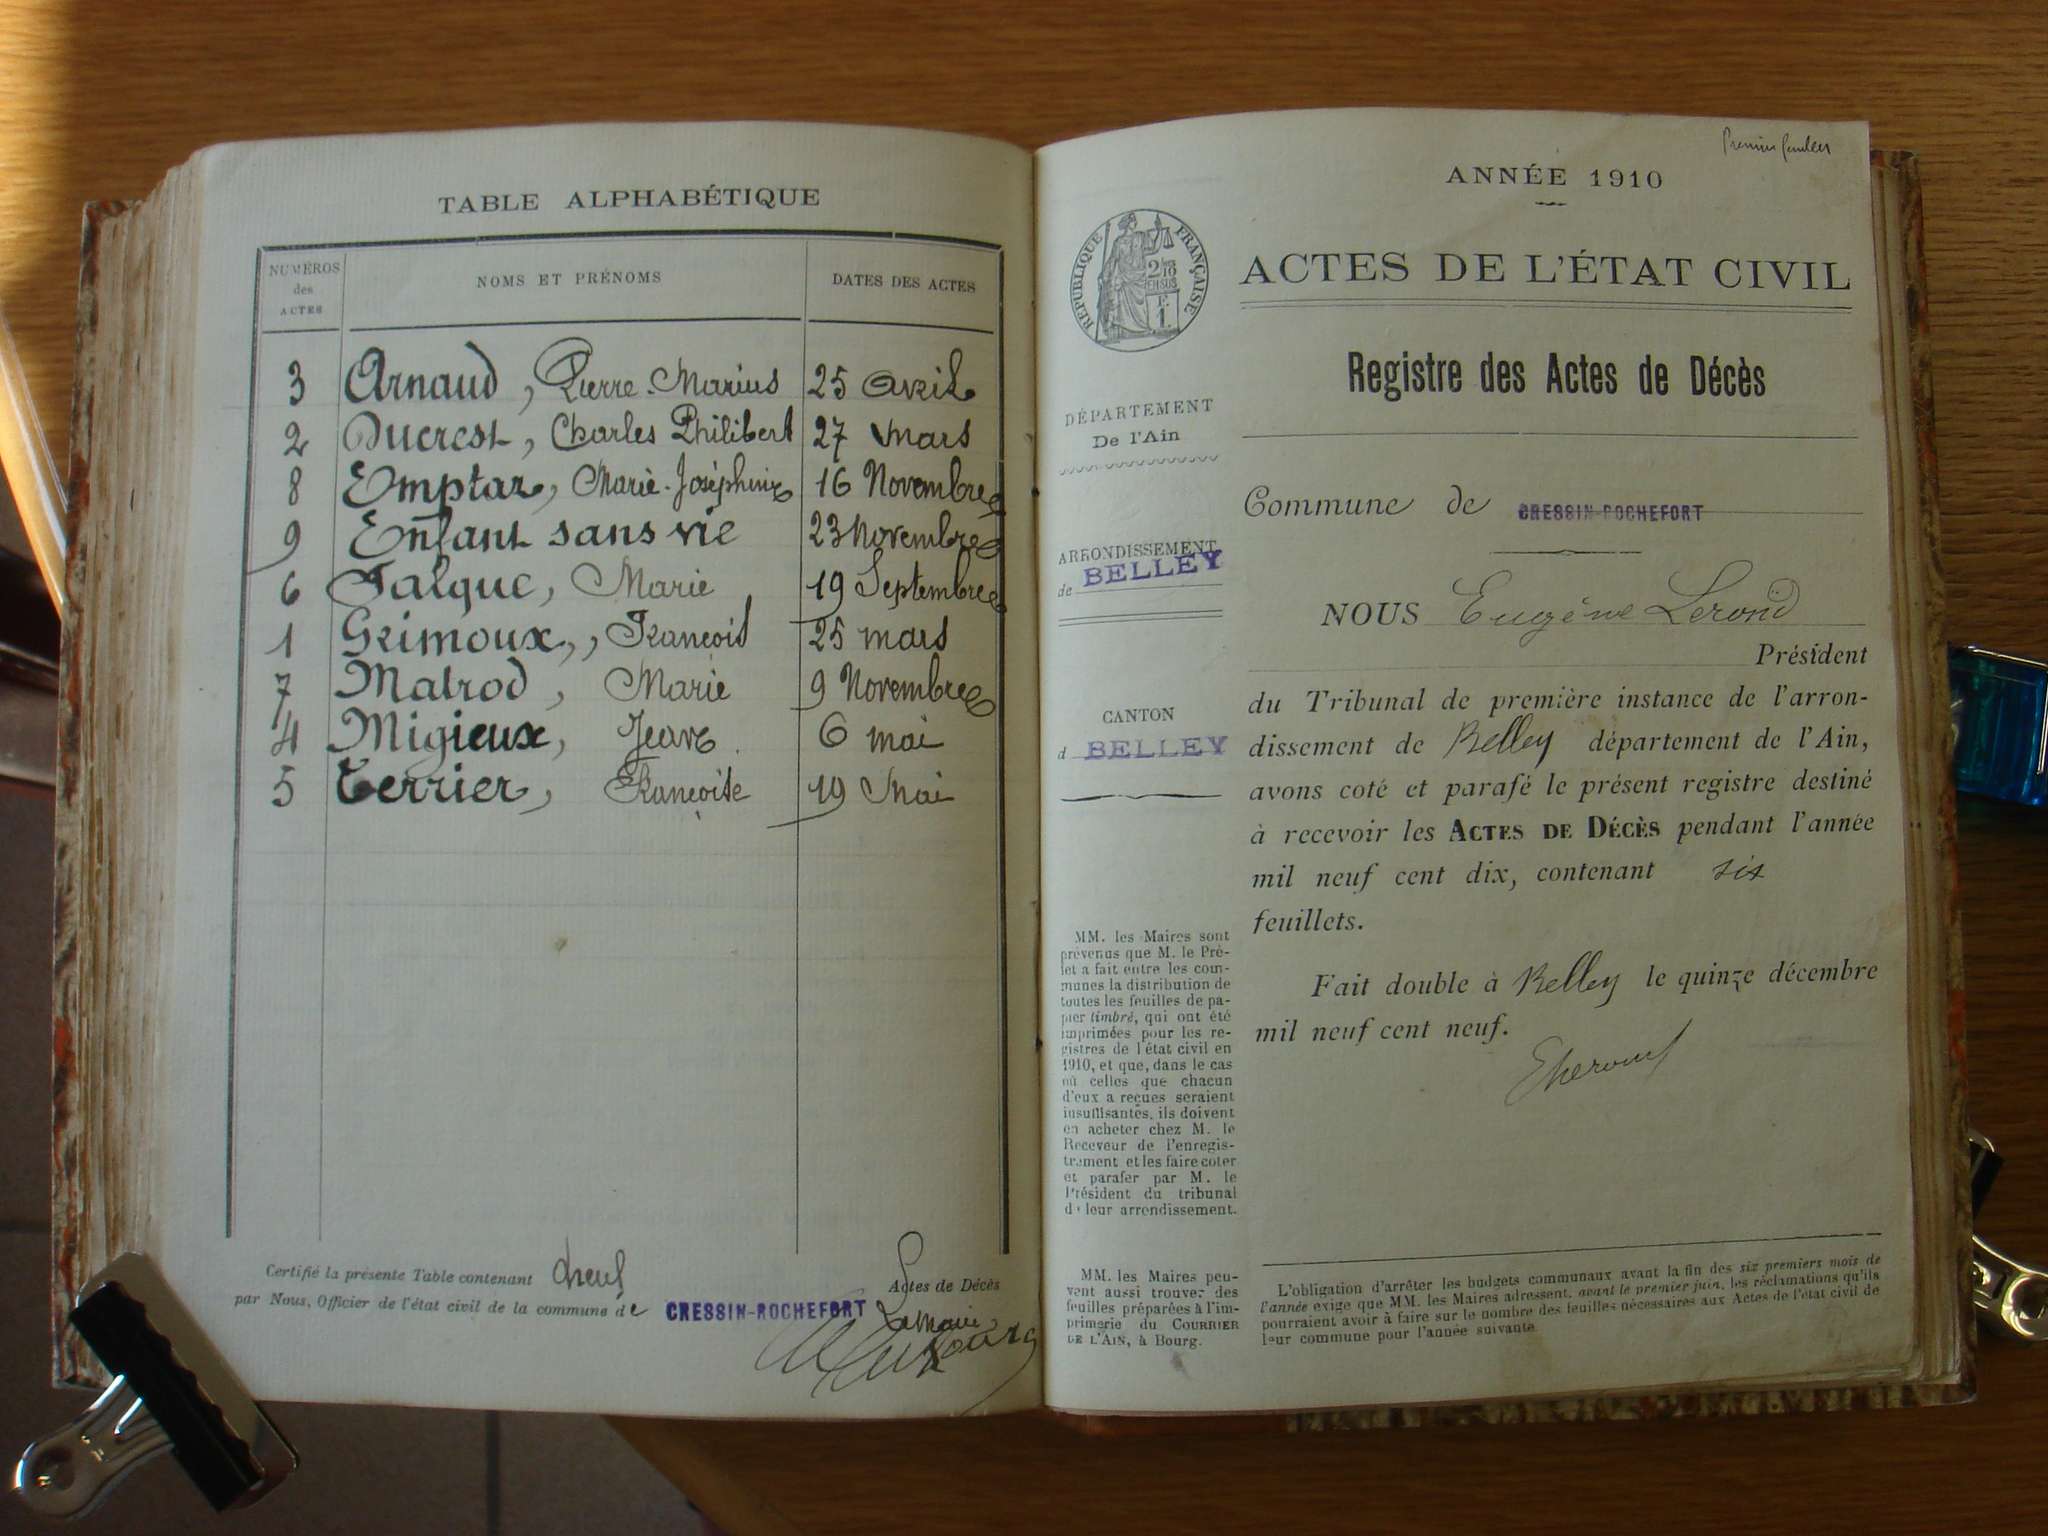 TABLE ALPHABÉTIQUE
NUMÉROS
des
ACTES
NOMS ET PRÉNOMS
DATES DES ACTES
3 Arnaud, Pierre-Marius 25 avril
2 Ducrest, Charles Philibert 27 mars
8 Emptaz, Marie-Joséphine 16 Novembre
9 Enfant sans vie 23 Novembre
6 Falque, Marie 19 Septembre
1 Grimoux, François 25 mars
7 Matrod, Marie 9 Novembre
4 Migieux, Jeanne 6 mai
5 Terrier, Françoise 19 Mai
Certifié la présente Table contenant neuf Actes de Décès
par Nous, Officier de l'état civil de la commune de CRESSIN-ROCHEFORT
Le Maire
Premier feuillet
ANNÉE 1910
RÉPUBLIQUE FRANÇAISE
2/10
EN SUS
ACTES DE L'ÉTAT CIVIL
Registre des Actes de Décès
DÉPARTEMENT
De l'Ain
ARRONDISSEMENT
de BELLEY
CANTON
d BELLEY
MM. les Maires sont
prévenus que M. le Pré-
fet a fait entre les com-
munes la distribution de
toutes les feuilles de pa-
pier timbré, qui ont été
imprimées pour les re-
gistres de l'état civil en
1910, et que, dans le cas
où celles que chacun
d'eux a reçues seraient
insuffisantes, ils doivent
en acheter chez M. le
Receveur de l'enregis-
trement et les faire coter
et parafer par M. le
Président du tribunal
de leur arrondissement.
MM. les Maires peu-
vent aussi trouver des
feuilles préparées à l'im-
primerie du COURRIER
DE L'AIN, à Bourg.
Commune de CRESSIN-ROCHEFORT
NOUS Eugène Lerond
Président
du Tribunal de première instance de l'arron-
dissement de Belley département de l'Ain,
avons coté et parafé le présent registre destiné
à recevoir les ACTES DE DÉCÈS pendant l'année
mil neuf cent dix, contenant six
feuillets.
Fait double à Belley le quinze décembre
mil neuf cent neuf.
L'obligation d'arrêter les budgets communaux avant la fin des six premiers mois de
l'année exige que MM. les Maires adressent, avant le premier juin, les réclamations qu'ils
pourraient avoir à faire sur le nombre des feuilles nécessaires aux Actes de l'état civil de
leur commune pour l'année suivante.